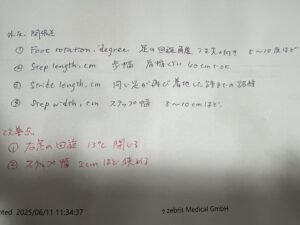 ① Foot rotation, degree 足の回旋角度 つま先の向き 5〜10度ほど
② Step length, cm 歩幅 肩幅くらい 40cmでok
③ Stride length, cm 同じ足が再び着地した時までの距離
④ Step width, cm ステップ幅 8〜10cmほど
改善点
① 右足の回旋 13℃ 閉じる
② ステップ幅 2cmほど狭める
nted 2025/06/11 11:34:37
© zebris Medical GmbH